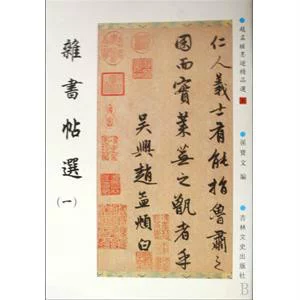 趙孟頫墨迹精品選
孫寶文 編
吉林文史出版社
仁人義士有能指魯肅之
囷而實萊蕪之甑者乎
吳興趙孟頫白
雜書帖選
(一)
B